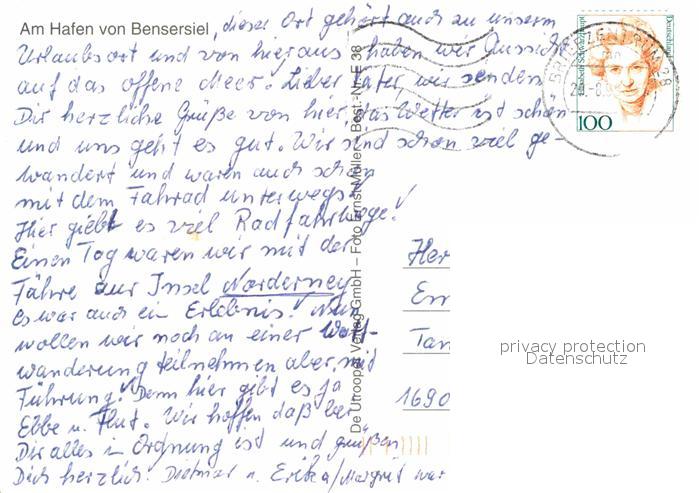 Am Hafen von Bensersiel, dieser Ort gehört auch zu unserm
Urlaubsort und von hier aus haben wir Aussicht
auf das offene Meer. Lieber Vater, wir senden
Dir herzliche Grüße von hier, das Wetter ist schön
und uns geht es gut. Wir sind schon viel ge-
wandert und waren auch schon
mit dem Fahrad unterwegs.
Hier giebt es viel Radfahrwege!
Einen Tag waren wir mit der
Fähre zur Insel Norderney
Es war auch ein Erlebnis! Nun
wollen wir noch an einer Watt-
wanderung teilnehmen aber mit
Führung! Denn hier gibt es ja
Ebbe u. Flut. Wir hoffen daß bei
Dir alles in Ordnung ist und grüßen
Dich herzlich. Dietmar u. Erika/Margret war
De Utrooper Verlag GmbH – Foto Ernst Müller – Best.-Nr. E 38
BRIEFZENTRUM 28
Deutschland
Elisabeth Schwarzhaupt
100
Her
Em
Tan
1690
privacy protection
Datenschutz